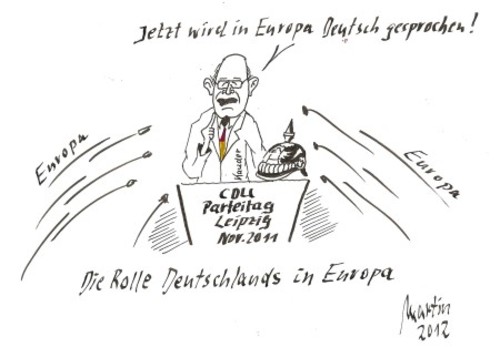 Jetzt wird in Europa Deutsch gesprochen!
Europa
Europa
Kauder
CDU
Parteitag
Leipzig
Nov. 2011
Die Rolle Deutschlands in Europa
Martin
2012